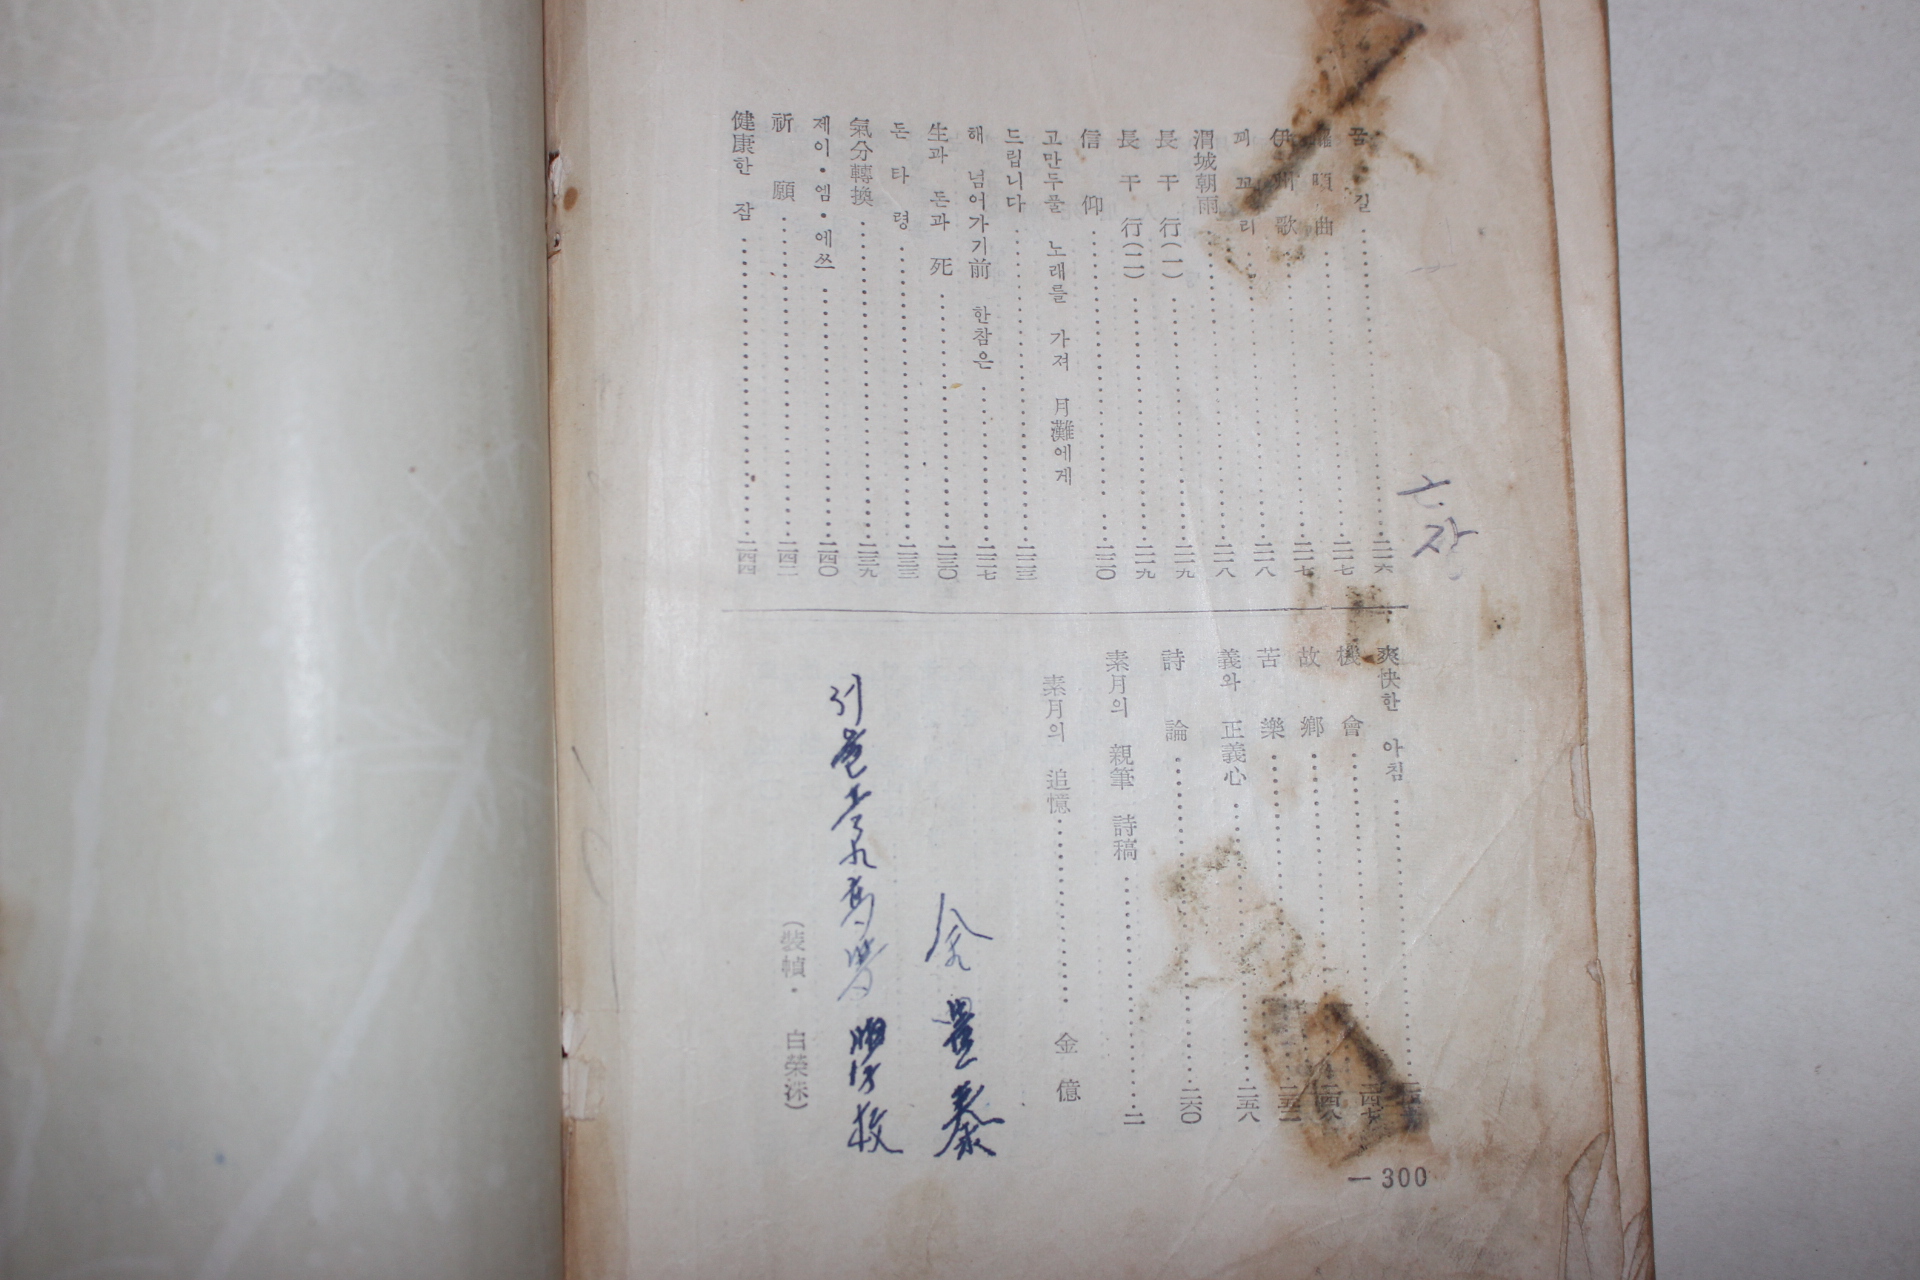 꿈 길 二一六
囉嗊曲 二一七
伊州歌 二一七
꾀꼬리 二一八
渭城朝雨 二一八
長干行(一) 二一九
長干行(二) 二一九
信仰 二二〇
고만두풀 노래를 가져 月灘에게
드립니다 二二三
해 넘어가기前 한참은 二二七
生과 돈과 死 二三〇
돈타령 二三三
氣分轉換 二三九
제이·엠·에쓰 二四〇
祈願 二四二
健康한 잠 二四四
爽快한 아침
機會 二四七
故鄕 二四八
苦樂
義와 正義心 二五八
詩論 二六〇
素月의 親筆 詩稿 二
素月의 追憶 金 億
(裝幀· 白榮洙)
— 300